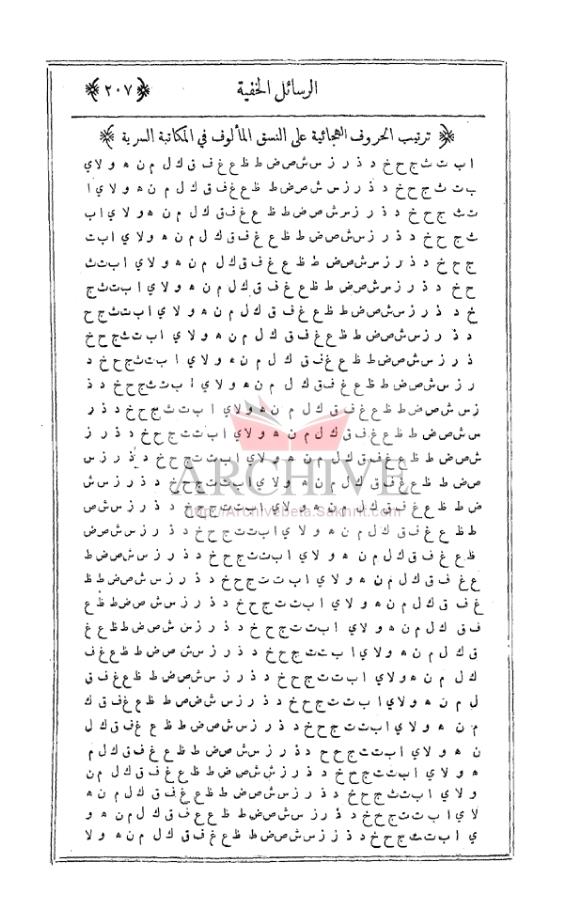 الرسائل الخفية ﴿٢٠٧﴾
﴿ ترتيب الحروف الهجائية على النسق المألوف في المكاتبة السرية ﴾
ا ب ت ث ج ح خ د ذ ر ز س ش ص ض ط ظ ع غ ف ق ك ل م ن ه و لا ي
ب ت ث ج ح خ د ذ ر ز س ش ص ض ط ظ ع غ ف ق ك ل م ن ه و لا ي ا
ت ث ج ح خ د ذ ر ز س ش ص ض ط ظ ع غ ف ق ك ل م ن ه و لا ي ا ب
ث ج ح خ د ذ ر ز س ش ص ض ط ظ ع غ ف ق ك ل م ن ه و لا ي ا ب ت
ج ح خ د ذ ر ز س ش ص ض ط ظ ع غ ف ق ك ل م ن ه و لا ي ا ب ت ث
ح خ د ذ ر ز س ش ص ض ط ظ ع غ ف ق ك ل م ن ه و لا ي ا ب ت ث ج
خ د ذ ر ز س ش ص ض ط ظ ع غ ف ق ك ل م ن ه و لا ي ا ب ت ث ج ح
د ذ ر ز س ش ص ض ط ظ ع غ ف ق ك ل م ن ه و لا ي ا ب ت ث ج ح خ
ذ ر ز س ش ص ض ط ظ ع غ ف ق ك ل م ن ه و لا ي ا ب ت ث ج ح خ د
ر ز س ش ص ض ط ظ ع غ ف ق ك ل م ن ه و لا ي ا ب ت ث ج ح خ د ذ
ز س ش ص ض ط ظ ع غ ف ق ك ل م ن ه و لا ي ا ب ت ث ج ح خ د ذ ر
س ش ص ض ط ظ ع غ ف ق ك ل م ن ه و لا ي ا ب ت ت ج ح خ د ذ ر ز
ش ص ض ط ظ ع غ ف ق ك ل م ن ه و لا ي ا ب ت ت ج ح خ د ذ ر ز س
ص ض ط ظ ع غ ف ق ك ل م ن ه و لا ي ا ب ت ت ج ح خ د ذ ر ز س ش
ض ط ظ ع غ ف ق ك ل م ن ه و لا ي ا ب ت ت ج ح خ د ذ ر ز س ش ص
ط ظ ع غ ف ق ك ل م ن ه و لا ي ا ب ت ت ج ح خ د ذ ر ز س ش ص ض
ظ ع غ ف ق ك ل م ن ه و لا ي ا ب ت ت ج ح خ د ذ ر ز س ش ص ض ط
ع غ ف ق ك ل م ن ه و لا ي ا ب ت ت ج ح خ د ذ ر ز س ش ص ض ط ظ
غ ف ق ك ل م ن ه و لا ي ا ب ت ت ج ح خ د ذ ر ز س ش ص ض ط ظ ع
ف ق ك ل م ن ه و لا ي ا ب ت ت ج ح خ د ذ ر ز س ش ص ض ط ظ ع غ
ق ك ل م ن ه و لا ي ا ب ت ت ج ح خ د ذ ر ز س ش ص ض ط ظ ع غ ف
ك ل م ن ه و لا ي ا ب ت ت ج ح خ د ذ ر ز س ش ص ض ط ظ ع غ ف ق
ل م ن ه و لا ي ا ب ت ت ج ح خ د ذ ر ز س ش ص ض ط ظ ع غ ف ق ك
م ن ه و لا ي ا ب ت ت ج ح خ د ذ ر ز س ش ص ض ط ظ ع غ ف ق ك ل
ن ه و لا ي ا ب ت ت ج ح خ د ذ ر ز س ش ص ض ط ظ ع غ ف ق ك ل م
ه و لا ي ا ب ت ت ج ح خ د ذ ر ز س ش ص ض ط ظ ع غ ف ق ك ل م ن
و لا ي ا ب ت ث ج ح خ د ذ ر ز س ش ص ض ط ظ ع غ ف ق ك ل م ن ه
لا ي ا ب ت ت ج ح خ د ذ ر ز س ش ص ض ط ظ ع غ ف ق ك ل م ن ه و
ي ا ب ت ث ج ح خ د ذ ر ز س ش ص ض ط ظ ع غ ف ق ك ل م ن ه و لا
ARCHIVE
http://Archivebeta.Sakhrit.com